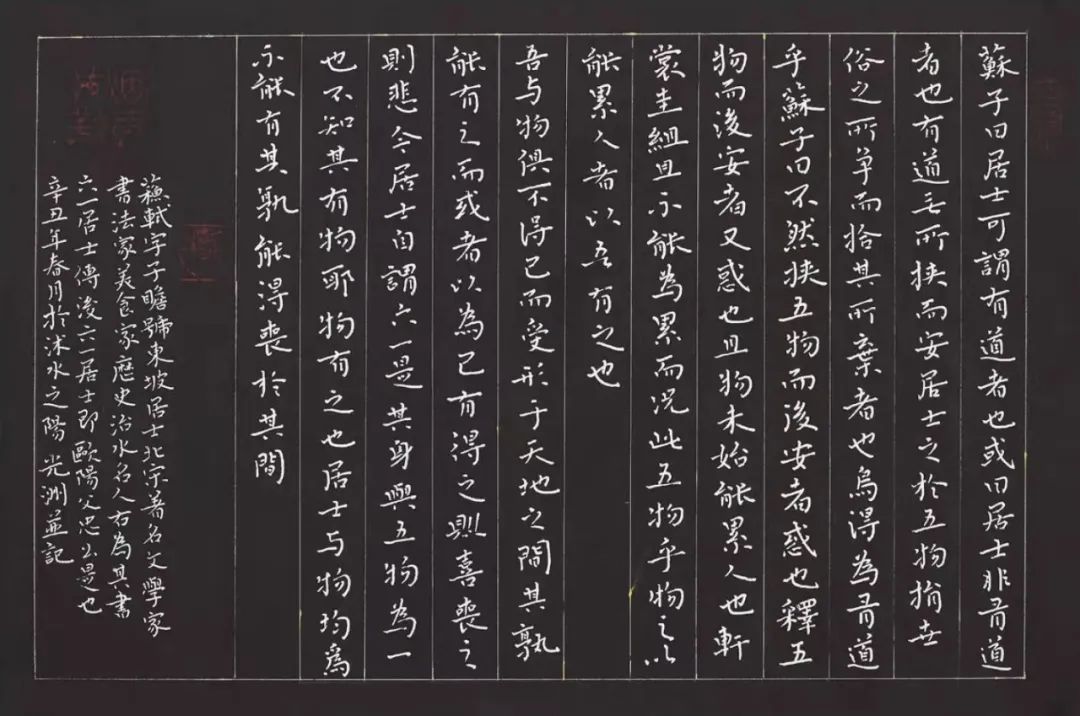 蘇子曰居士可謂有道者也或曰居士非有道
者也有道无所挟而安居士之於五物捐世
俗之所爭而拾其所棄者也烏得為有道
乎蘇子曰不然挟五物而後安者惑也釋五
物而後安者又惑也且物未始能累人也軒
裳圭組且不能為累而况此五物乎物之以
能累人者以吾有之也
吾与物俱不得已而受形于天地之間其孰
能有之而或者以為己有得之則喜喪之
則悲今居士自謂六一是其身與五物為一
也不知其有物耶物有之也居士与物均為
不能有其孰能得喪於其間
蘇軾字子瞻號東坡居士北宋著名文學家
書法家美食家歷史治水名人右為其書
六一居士傳後六一居士即歐陽文忠公是也
辛丑年春月於沭水之陽光洲並記